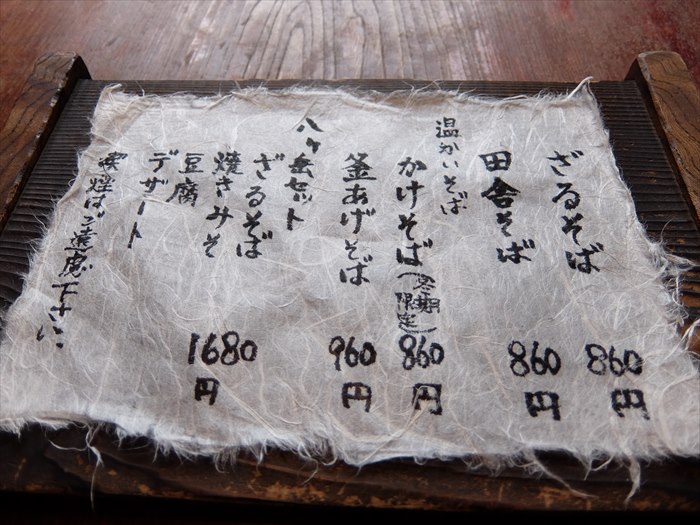 ざるそば 860円
田舎そば 860円
温かいそば
かけそば(冬期限定) 860円
釜あげそば 960円
八ヶ岳セット
ざるそば
焼きみそ 1680円
豆腐
デザート
喫煙はご遠慮下さい